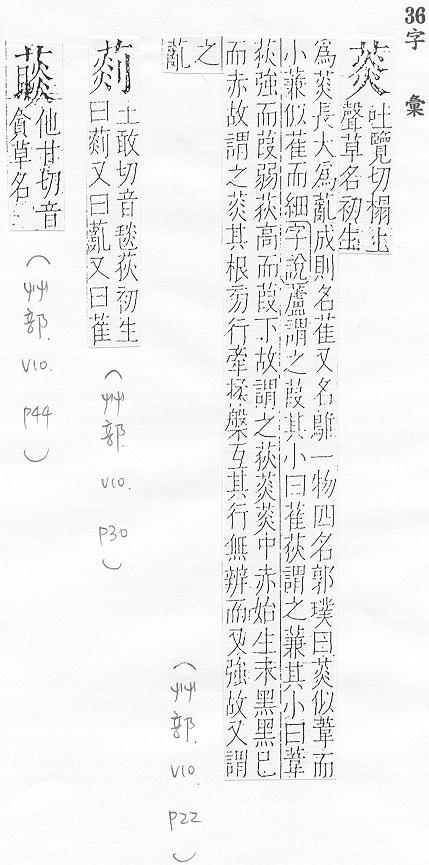 36字 彙
菼
吐覽切榻上
聲草名初生
為菼長大為薍成則名萑又名鵻一物四名郭璞曰菼似葦而
小蒹似萑而細字說蘆謂之葭其小曰萑荻謂之蒹其小曰葦
荻強而葭弱荻高而葭下故謂之荻菼菼中赤始生未黑黑已
而赤故謂之菼其根旁行牽揉槃互其行無辨而又強故又謂
之
薍
(艸部. V10. P22)
土敢切音毯荻初生
曰又曰薍又曰萑
(艸部. V10. P30)
他甘切音
貪草名
(艸部. V10. P44)